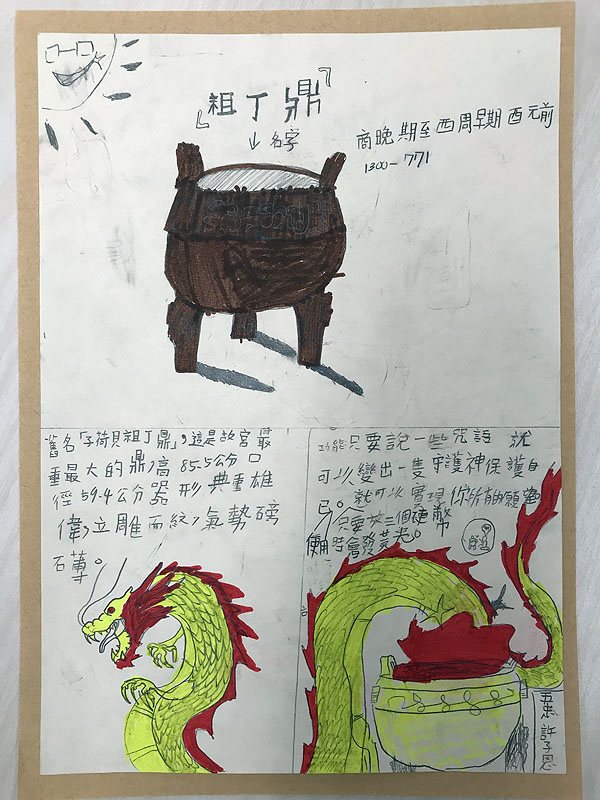 『祖丁鼎』
↓名字
商晚期至西周早期 西元前
1300-771
舊名「子荷貝祖丁鼎」，這是故宮最
重最大的鼎，高 85.5公分 口
徑 59.4公分 器 形 典重雄
偉，立雕面紋，氣勢磅
礡。
功能只要說一些咒語 就
可以變出一隻守護神保護自
己。就可以實現你所有的願望
只要放三個硬幣
使用時會發黃光。
許子恩